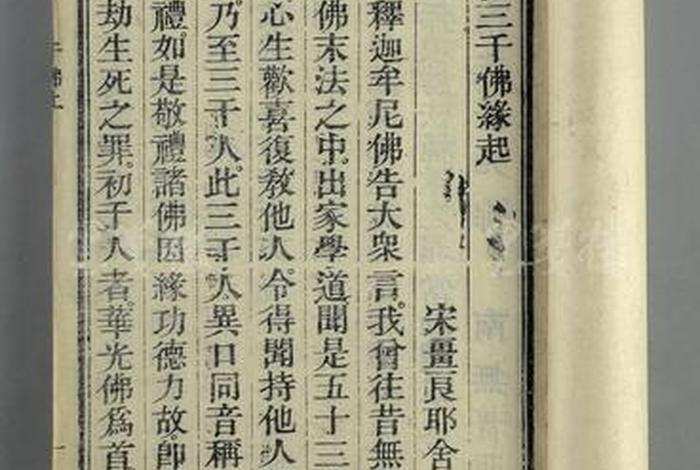 三千佛緣起
宋畺良耶舍
釋迦牟尼佛告大衆言。我曾往昔無
佛末法之中。出家學道。聞是五十三
心生歡喜。復敎他人。令得聞持。他人
乃至三千人。此三千人。異口同音。稱
禮。如是敬禮諸佛因緣功德力故。卽
劫生死之罪。初千人者。華光佛爲首